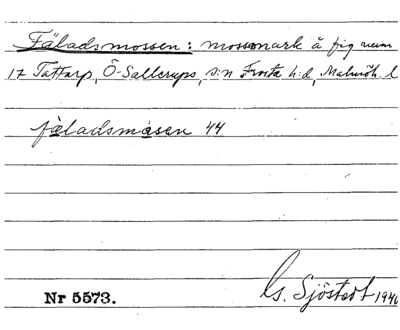 Fäladsmossen: mossmark å fig num
17 Tåttarp, Ö-Sallerups, s:n Frosta h:d, Malmöh. l
fäladsmåsen 44
Nr 5573. G. Sjöstedt 1940